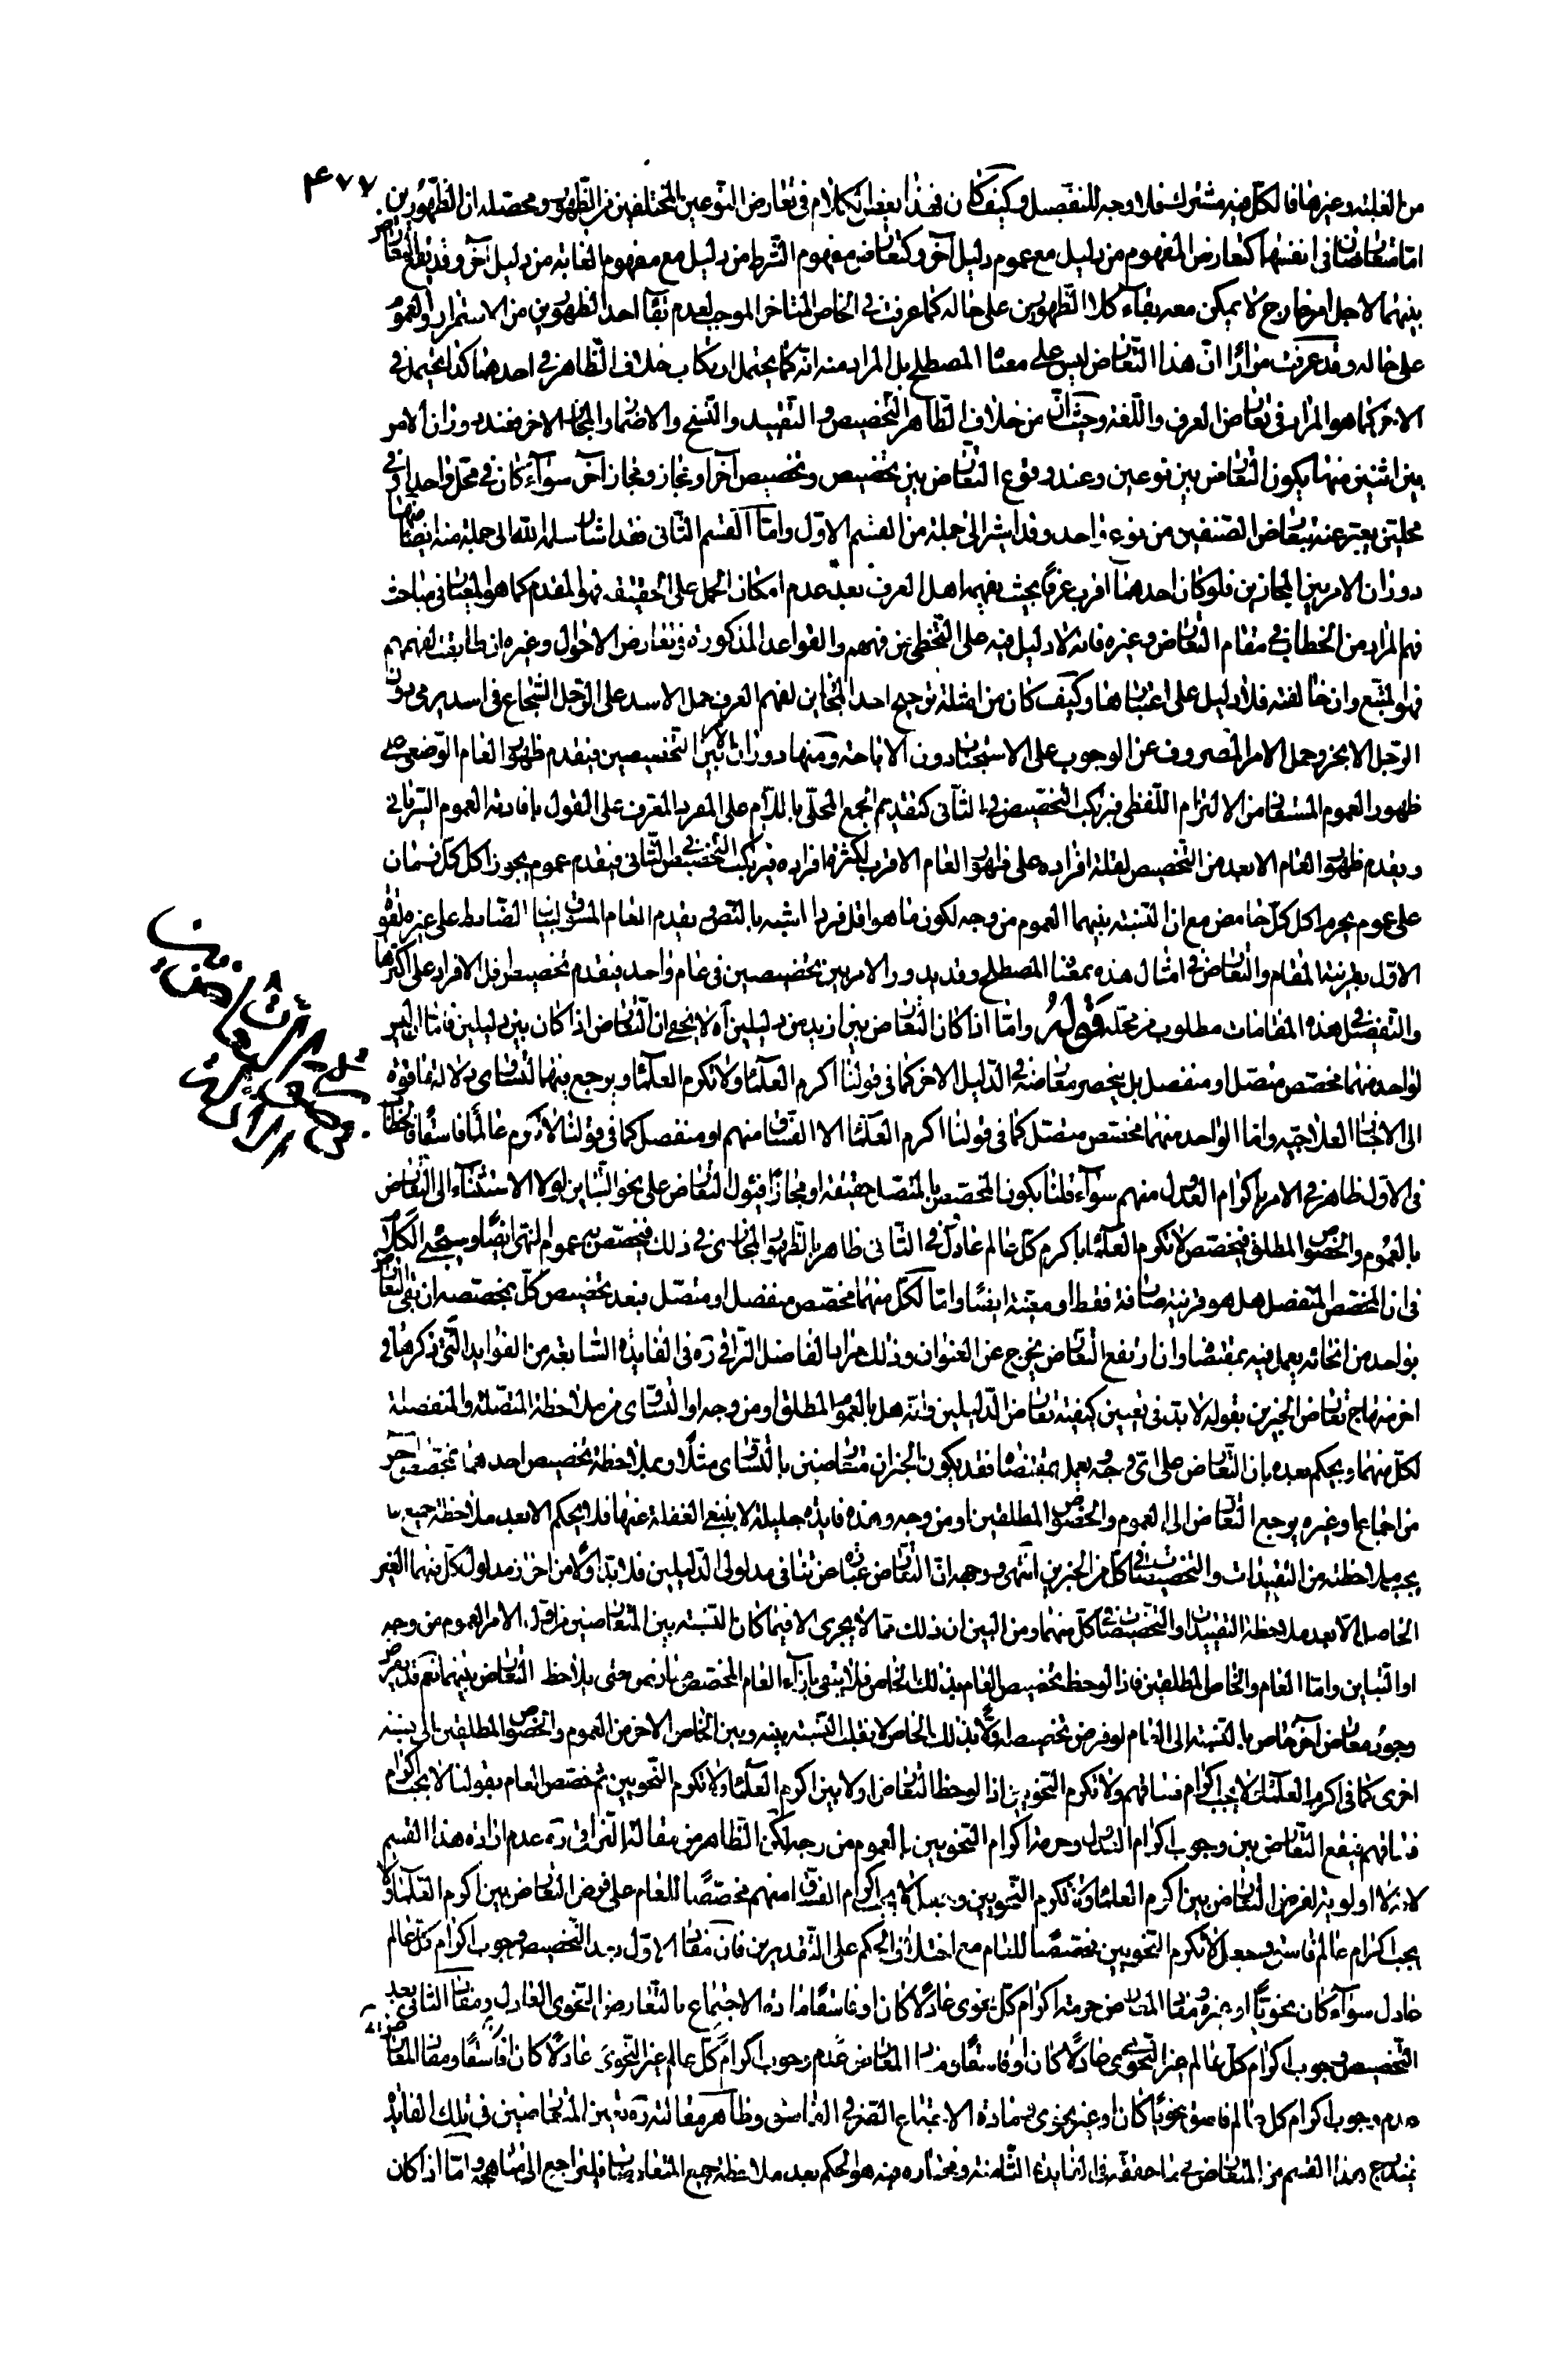 ۴۷۷
من الغلبة وغيرها فالكل فيه مشترك فلا وجه للتفصيل وكيف كان فهذا بعض الكلام في تعارض النوعين المختلفين من الظهور ومحصله ان الظهورين
اما متعارضان في انفسهما كتعارض المفهوم من دليل مع عموم دليل آخر وكتعارض مفهوم الشرط من دليل مع مفهوم الغاية من دليل آخر وقد يقع التعارض
بينهما لاجل امر خارج لا يمكن معه بقاء كلا الظهورين على حاله كما عرفت في الخاص المتاخر الموجب لعدم بقاء احد الظهورين من الاستمرار والعموم
على حاله وقد عرفت مرارا ان هذا التعارض ليس على معناه المصطلح بل المراد منه انه كما يحتمل ارتكاب خلاف الظاهر في احدهما كذا يحتمل في
الاخر كما هو المراد في تعارض العرف واللغة وحيث ان من خلاف الظاهر التخصيص والتقييد والنسخ والاضمار والمجاز الاخر فعند دوران الامر
بين اثنين منهما يكون التعارض بين نوعين وعند وقوع التعارض بين تخصيص وتخصيص آخر او مجاز ومجاز آخر سواء كان في محل واحد او في
محلين يعبر عنه بتعارض الصنفين من نوع واحد وقد اشير الى جملة من القسم الاول واما القسم الثاني فقد اشار سلمه الله الى جملة منه ايضا منها
دوران الامر بين المجازين فلو كان احدهما اقرب عرفا بحيث يفهمه اهل العرف بعد عدم امكان الحمل على الحقيقة فهو المقدم كما هو المعيار في مباحث
فهم المراد من الخطاب في مقام التعارض وغيره فانه لا دليل فيه على التخطي عن فهمهم والقواعد المذكورة في تعارض الاحوال وغيره ان طابقت لفهمهم
فهو المتبع وان خالفته فلا دليل على اعتبارها وكيف كان من امثلة ترجيح احد المجازين لفهم العرف حمل الاسد على الرجل الشجاع في اسد يرمي دون
الرجل الابخر وحمل الامر المصروف عن الوجوب على الاستحباب دون الاباحة ومنها دوران الامر بين التخصيصين فيقدم ظهور العام الوضعي على
ظهور العموم المستفاد من الالتزام اللفظي فيرتكب التخصيص في الثاني كتقديم الجمع المحلى باللام على المفرد المعرف على القول بافادته العموم السرياني
ويقدم ظهور العام الابعد من التخصيص لقلة افراده على ظهور العام الاقرب لكثرة افراده فيرتكب التخصيص في الثاني فيقدم عموم يجوز اكل كل رمان
على عموم يحرم اكل كل حامض مع ان النسبة بينهما العموم من وجه لكون ما هو اقل فردا اشبه بالنص ويقدم العام المسوق لبيان الضابط على غيره لقوة
الاول بقرينة المقام والتعارض في امثال هذه بمعناه المصطلح وقد يدور الامر بين تخصيصين في عام واحد فيقدم تخصيص اقل الافراد على اكثرها
والتفصيل في هذه المقامات مطلوب من محله قوله واما اذا كان التعارض بين ازيد من دليلين آه لا يخفى ان التعارض اذا كان بين دليلين فاما ان ليس
لواحد منهما مخصص متصل او منفصل بل ينحصر معارضه في الدليل الاخر كما في قولنا اكرم العلماء ولا تكرم العلماء ويرجع بينهما لتساوي دلالتهما قوة
الى الاخبار العلاجية واما الواحد منهما مخصص متصل كما في قولنا اكرم العلماء الا الفساق منهم او منفصل كما في قولنا لا تكرم عالما فاسقا فالخطاب
في الاول ظاهر في الامر باكرام العدول منهم سواء قلنا بكون المخصص بالمتصل حقيقة او مجازا فيئول التعارض على نحو التباين لولا الاستثناء الى التعارض
بالعموم والخصوص المطلق فيخصص لا تكرم العلماء باكرم كل عالم عادل وفي الثاني ظاهر بالظهور المجازي في ذلك فيخصص به عموم النهي ايضا وسيجيء الكلام
في ان المخصص المنفصل هل هو قرينة صارفة فقط او معينة ايضا واما لكل منهما مخصص منفصل او متصل فبعد تخصيص كل بمخصصه ان بقي التعارض
بواحد من انحائه يعمل فيه بمقتضاه وان ارتفع التعارض يخرج عن العنوان وذلك مراد الفاضل النراقي ره في الفايدة السابعة من الفوايد التي ذكرها في
اخر منهاج تعارض الخبرين بقوله لا بد في تعيين كيفية تعارض الدليلين وانه هل بالعموم المطلق او من وجه او التساوي من ملاحظة المتصلة والمنفصلة
لكل منهما ويحكم بعده بان التعارض على اي وجه يعمل بمقتضاه فقد يكون الخبران متعارضين بالتساوي مثلا وبملاحظة تخصيص احدهما بمخصص آخر
من اجماع او غيره يرجع التعارض الى العموم والخصوص المطلقين او من وجه وهذه فايدة جليلة لا ينبغي الغفلة عنها فلا يحكم الا بعد ملاحظة جميع ما
يجب ملاحظته من التقييدات والتخصيصات في كل من الخبرين انتهى ووجهه ان التعارض عبارة عن تنافي مدلولي الدليلين فلا بد اولا من احراز مدلول كل منهما الغير
الحاصل الا بعد ملاحظة التقييدات او التخصيصات في كل منهما ومن البين ان ذلك مما لا يجري الا فيما كان النسبة بين المتعارضين من اول الامر العموم من وجه
او التباين واما العام والخاص المطلقين فاذا لوحظ تخصيص العام بذلك الخاص فلا يبقى بازاء العام المخصص تعارض حتى يلاحظ التعارض بينهما نعم قد يفرض
وجود معارض آخر خاص بالنسبة الى العام لو فرض تخصيصه اولا بذلك الخاص لانقلبت النسبة بينه وبين الخاص الاخر من العموم والخصوص المطلقين الى نسبة
اخرى كما في اكرم العلماء ولا يجب اكرام فساقهم ولا تكرم النحويين اذا لوحظ التعارض اولا بين اكرم العلماء ولا تكرم النحويين ثم خصص العام بقولنا لا يجب اكرام
فساقهم فيقع التعارض بين وجوب اكرام العدول وحرمة اكرام النحويين بالعموم من وجه لكن الظاهر من مقالة النراقي ره عدم ارادة هذا القسم
لانه لا اولوية لفرض التعارض بين اكرم العلماء ولا تكرم النحويين وجعل لا يجب اكرام الفساق منهم مخصصا للعام على فرض التعارض بين اكرم العلماء ولا
يجب اكرام عالم فاسق وجعل لا تكرم النحويين مخصصا للعام مع اختلاف الحكم على التقديرين فان مفاد الاول بعد التخصيص وجوب اكرام كل عالم
عادل سواء كان نحويا او غيره ومفاد المعارض حرمة اكرام كل نحوي عادلا كان او فاسقا مادة الاجتماع والتعارض النحوي العادل ومفاد الثاني بعد
التخصيص وجوب اكرام كل عالم غير النحوي عادلا كان او فاسقا ومفاد المعارض عدم وجوب اكرام
عدم وجوب اكرام كل عالم فاسق نحويا كان او غير نحوي
يندرج هذا القسم من التعارض في ما حققه في الفايدة الثامنة ومختاره فيه هو الحكم بعد ملاحظة جميع المتعارضات فليراجع الى منهاجه واما اذا كان